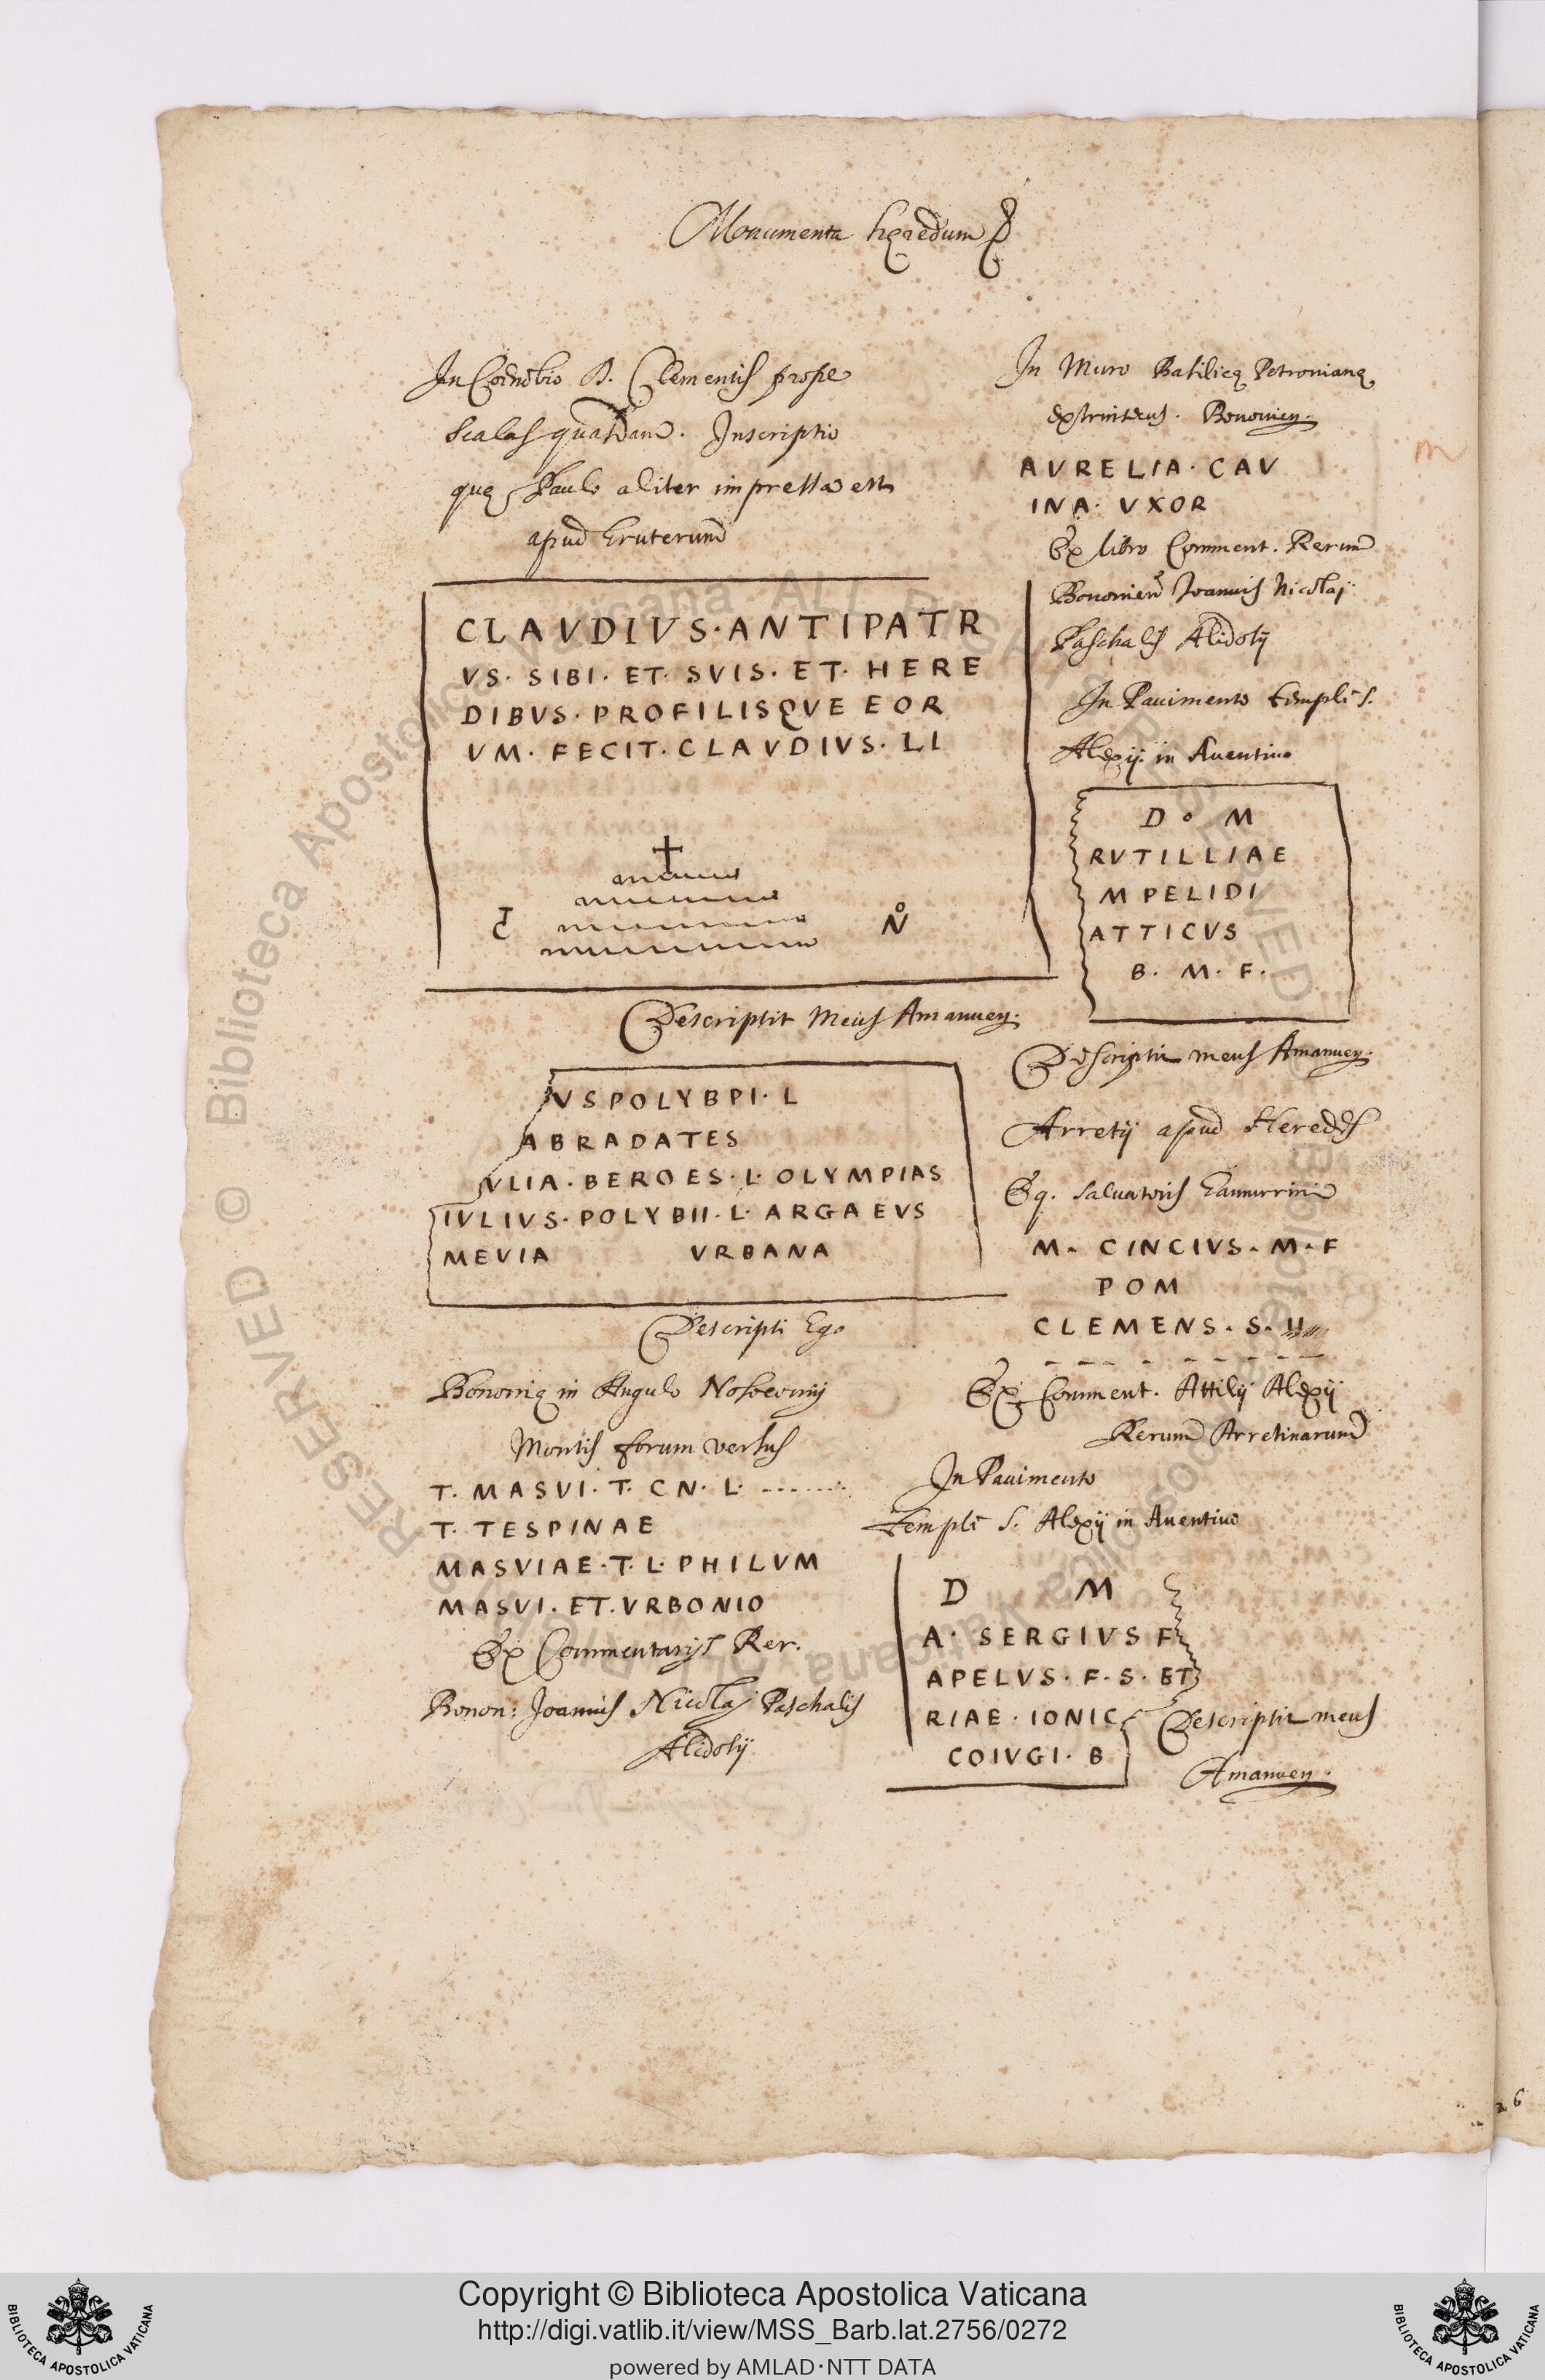 Monumenta hęredum
In Coenobio B. Clementis prope
scalas quasdam. Inscriptio
quę Paulo aliter impressa est
apud Gruterum
CLAVDIVS·ANTIPATR
VS· SIBI· ET· SVIS· ET· HERE
DIBVS· PROFILISQVE EOR
VM· FECIT· CLAVDIVS· LI
N
Descripsit Meus Amanuen.
VSPOLYBPI· L
ABRADATES
VLIA· BEROES· L· OLYMPIAS
IVLIVS· POLYBII· L· ARGAEVS
MEVIA VRBANA
Descripsi Ego
Bononię in Angulo
Montis forum versus
T. MASVI· T· CN· L· .......
T· TESPINAE
MASVIAE· T· L· PHILVM
MASVI· ET· VRBONIO
Ex Commentarijs Rer.
Bonon: Joannis Nicolaj Paschalis
Alidosij
In Muro Basilicę Petronianę
extrinsecus. Bononien.
AVRELIA· CAV
INA· VXOR
Ex libro Comment. Rerum
Bononien Joannis Nicolaj
Paschalis Alidosij
In Pauimento templi S.
Alexij in Auentino
D o M
RVTILLIAE
MPELIDI
ATTICVS
B· M· F·
Descripsit meus Amanuen.
Arretij apud Heredes
Eq. Saluatoris Gamurrini
M· CINCIVS· M· F
POM
CLEMENS· S· II
Ex Comment. Attilij Alexij
Rerum Arretinarum
In Pauimento
templi S. Alexij in Auentino
D M
A· SERGIVS F
APELVS· F· S· ET
RIAE· IONIC
COIVGI· B
Descripsit meus
Amanuen.
26
Copyright © Biblioteca Apostolica Vaticana
http://digi.vatlib.it/view/MSS_Barb.lat.2756/0272
powered by AMLAD·NTT DATA
BIBLIOTECA APOSTOLICA VATICANA
BIBLIOTECA APOSTOLICA VATICANA